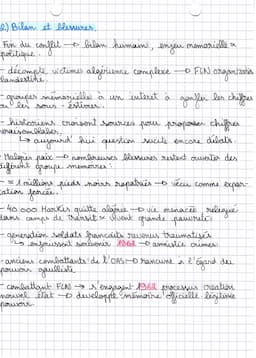 2) Bilan et blessures.
Fin du conflit → bilan humain, enjeu mémorielle x
politique.
- décompte victimes algérienne complexe → FLN organisation
clandestine
- groupes mémorielles à un intérêt à gonfler les chiffres
ou les sous-estimer.
- historiens croisent sources pour proposer chiffres
vraisemblables.
→ aujourd'hui question suscite encore débats.
- Malgré paix → nombreuses blessures restent ouvertes des
différent groupe mémoires :
- ≈ 1 millions pieds noirs rapatriés → vécu comme
cation forcée.
- 40 000 Harkis quitte algérie → vie menacée relégué
dans camps de transit x vivent grande pauvreté.
- génération soldats français revenus traumatisés
→ souvenir 1962 → amnistie crimes
- anciens combattants de l'OAS → rancune à l'égard du
pouvoir gaulliste
- combattant FLN → s'engagent 1962 processus création
nouvel état → développe mémoire officielle légitime
pouvoir.